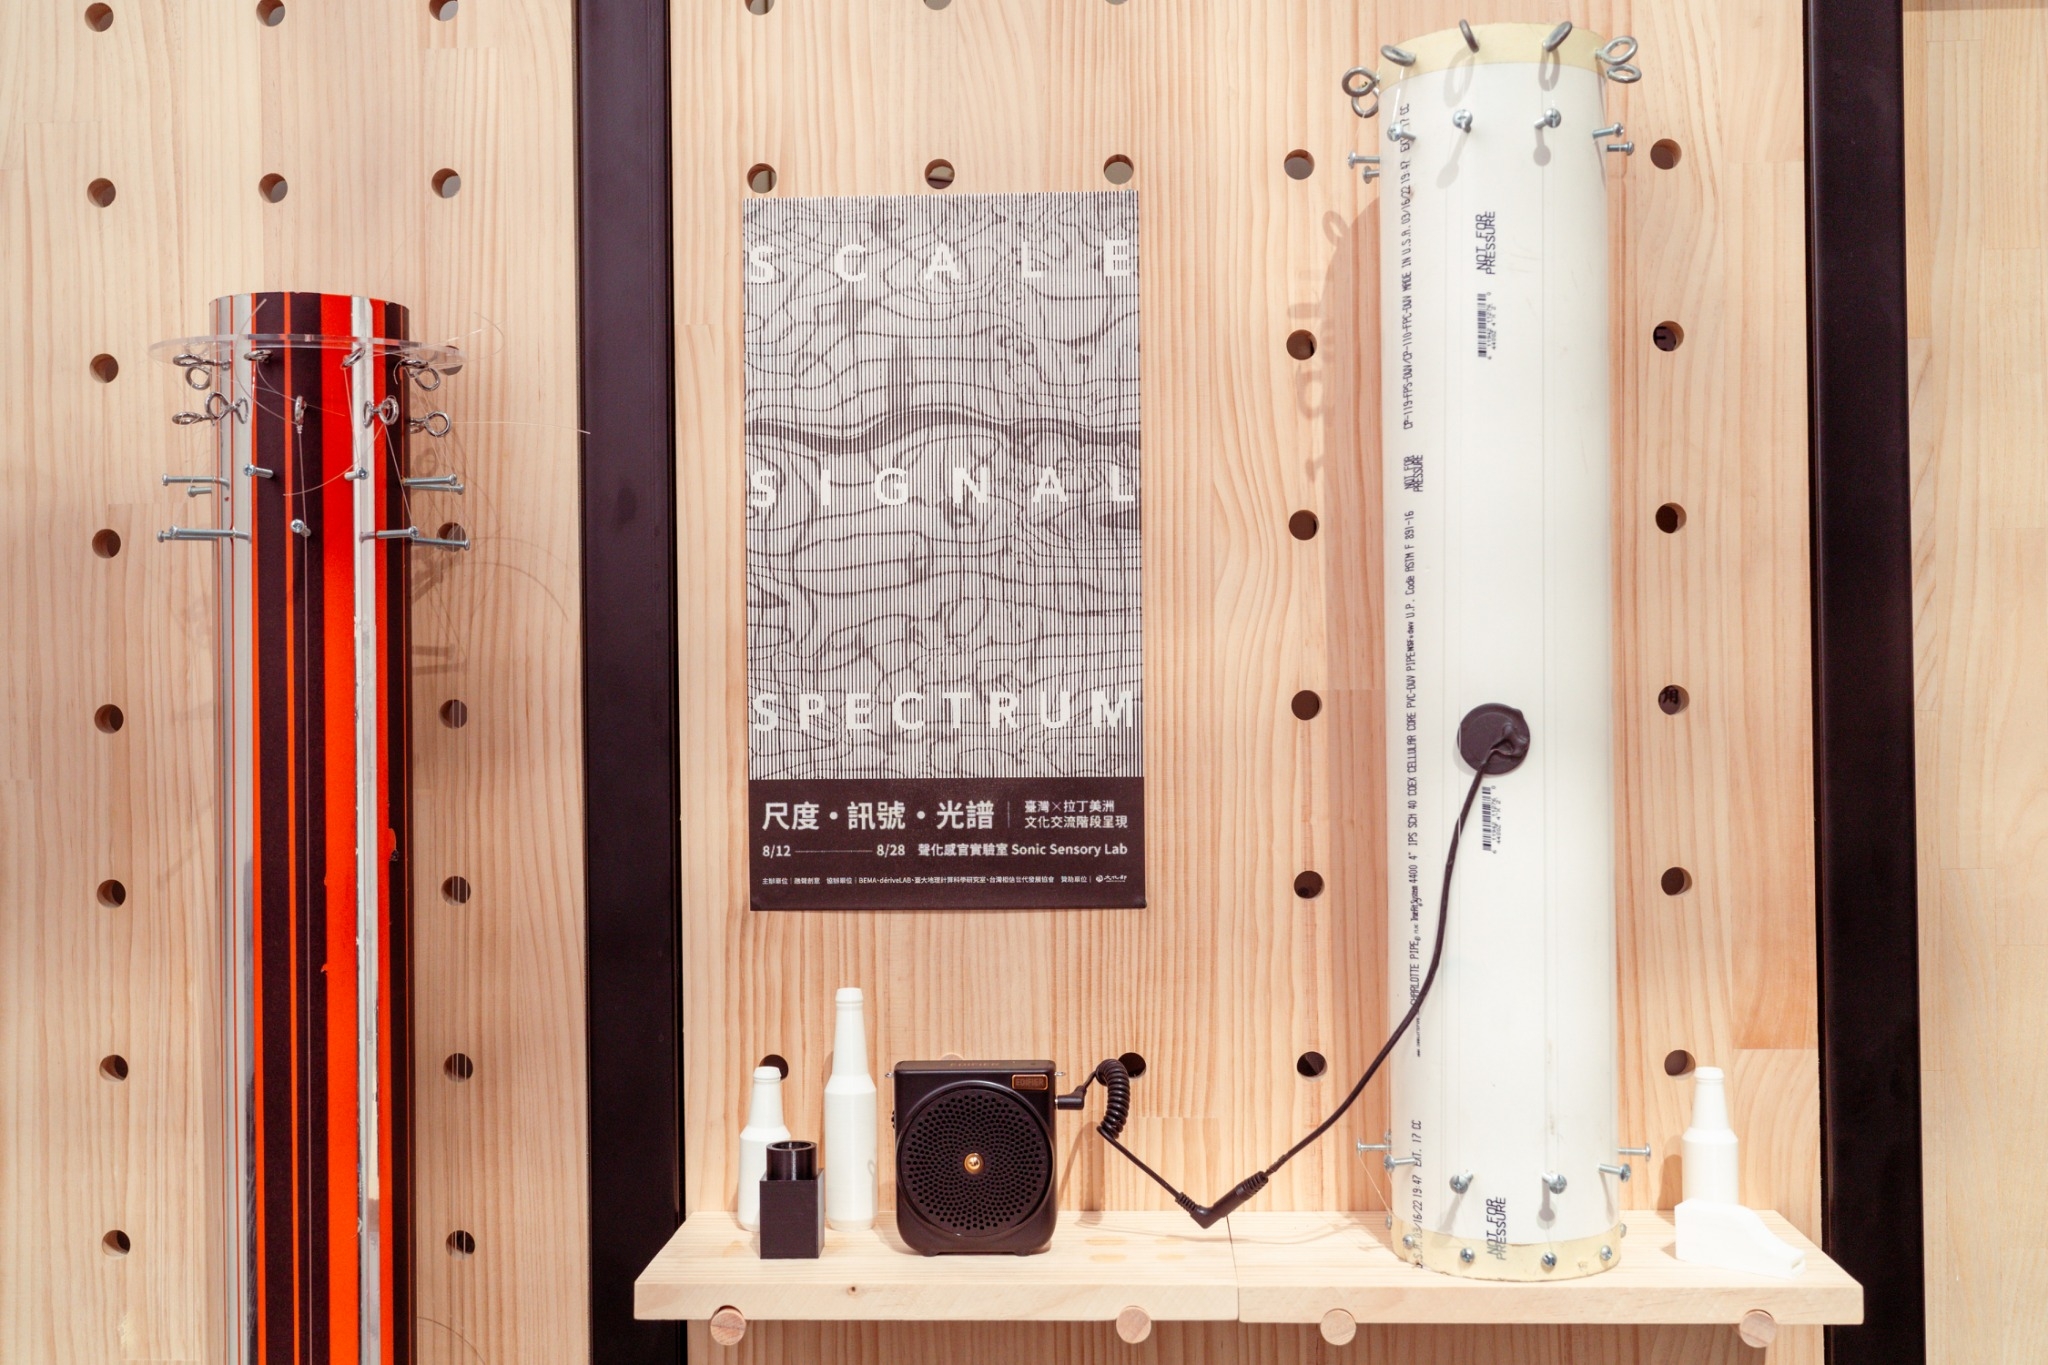 SCALE
SIGNAL
SPECTRUM
尺度・訊號・光譜
臺灣×拉丁美洲
文化交流階段呈現
8/12 8/28 聲化感官實驗室 Sonic Sensory Lab
主辦單位 協辦單位 BEMA、dériveLAB、臺大地理計算科學研究室、台灣相信世代發展協會 贊助單位 文化部
EDIFIER
EDIFIER
EXT. 17 CC
CP-110-FPC-DWV MADE IN U.S.A. 03/16/22 19:47
NOT FOR
PRESSURE
NOT FOR
PRESSURE
CHARLOTTE PIPE
4400 4" IPS SCH 40 COEX CELLULAR CORE PVC-DWV PIPE
U.P. Code ASTM F 891-16
03/16/22 19:47 EXT. 17 CC
NOT FOR
PRESSURE